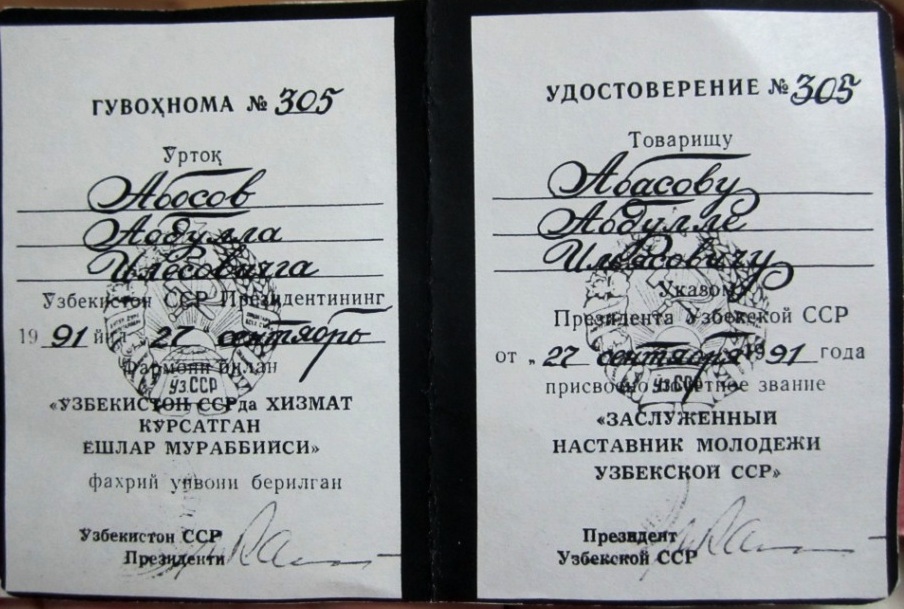 ГУВОҲНОМА № 305
Ўртоқ
Абосов
Абдулла
Илёсовичга
Узбекистон ССР Президентининг
1991 йил „27 сентябрь
Фармони билан
УзССР
«УЗБЕКИСТОН ССРда ХИЗМАТ
КУРСАТГАН
ЕШЛАР МУРАББИЙСИ»
фахрий унвони берилган
Узбекистон ССР
Президенти
УДОСТОВЕРЕНИЕ № 305
Товарищу
Абасову
Абдулле
Ильясовичу
Указом
Президента Узбекской ССР
от „27 сентября 1991 года
УзССР
присвоено почетное звание
«ЗАСЛУЖЕННЫЙ
НАСТАВНИК МОЛОДЕЖИ
УЗБЕКСКОЙ ССР»
Президент
Узбекской ССР